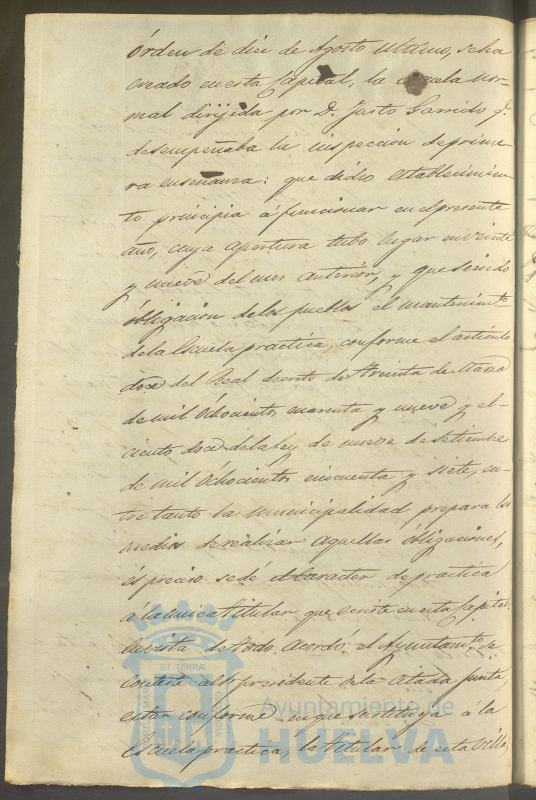 órden de diez de Agosto ultimo, se ha
creado en esta Capital, la escuela Nor-
mal dirijida por D. Justo Garrido q.e
desempeñaba la inspeccion de prime-
ra enseñanza: que dicho establecimien-
to principia á funcionar en el presente
año, cuya apertura tubo lugar en veinte
y nueve del mes anterior, y que siendo
óbligacion de los pueblos el mantenimto
de la Escuela practica, conforme el artículo
doce del Real decreto de treinta de Marzo
de mil óchocientos cuarenta y nueve y el
ciento doce de la ley de nueve de Setiembre
de mil óchocientos cincuenta y siete, en-
tre tanto la municipalidad prepara los
medios de realizar aquellas óbligaciones,
és preciso se dé el caracter de practica
á la unica titular que existe en esta Capital:
la vista de todo acordó el Ayuntamto se
conteste al Sr presidente de la citada junta,
estar conforme en que sustituya á la
Escuela practica, la titular de esta Villa,
ET TERRÆ
Ayuntamiento de
HUELVA